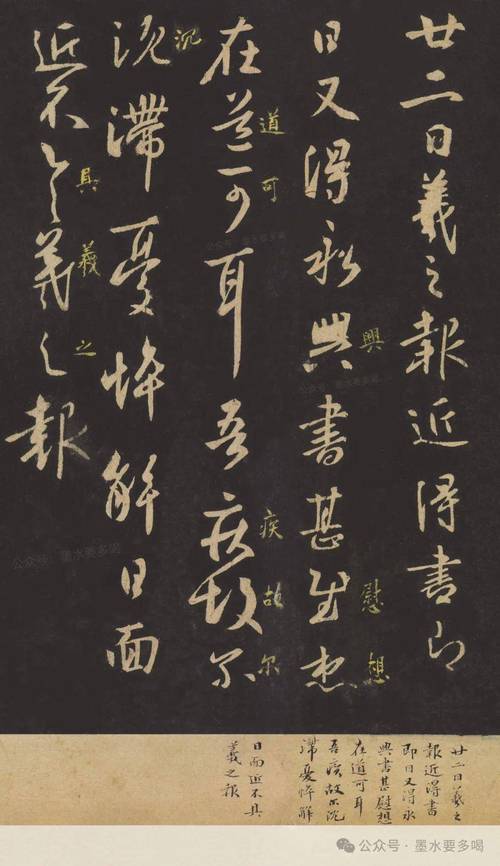 廿二日羲之報近得書即
日又得永興書甚慰想
興
慰
想
在道可耳吾疾故尔
道
可
疾
故
尔
沉滯憂悴解日面
沉
近不具羲之報
具
羲
之
廿二日羲之
報近得書
即日又得永
興書甚慰想
在道可耳
吾疾故尔沉
滯憂悴解
日面近不具
羲之報
公众号·墨水要多喝
公众号·墨水要多喝
公众号·墨水要多喝
公众号·墨水要多喝